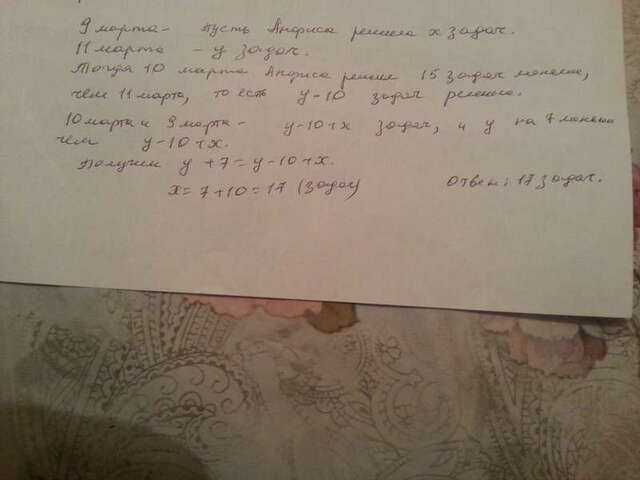 9 марта - пусть Анфиса решила x задач.
11 марта - y задач.
Тогда 10 марта Анфиса решила 15 задач меньше,
чем 11 марта, то есть y-10 задач решено.
10 марта и 9 марта - y-10+x задач, и y на 7 меньше
чем y-10+x.
Получим y+7=y-10+x.
x=7+10=17 (задач) Ответ: 17 задач.